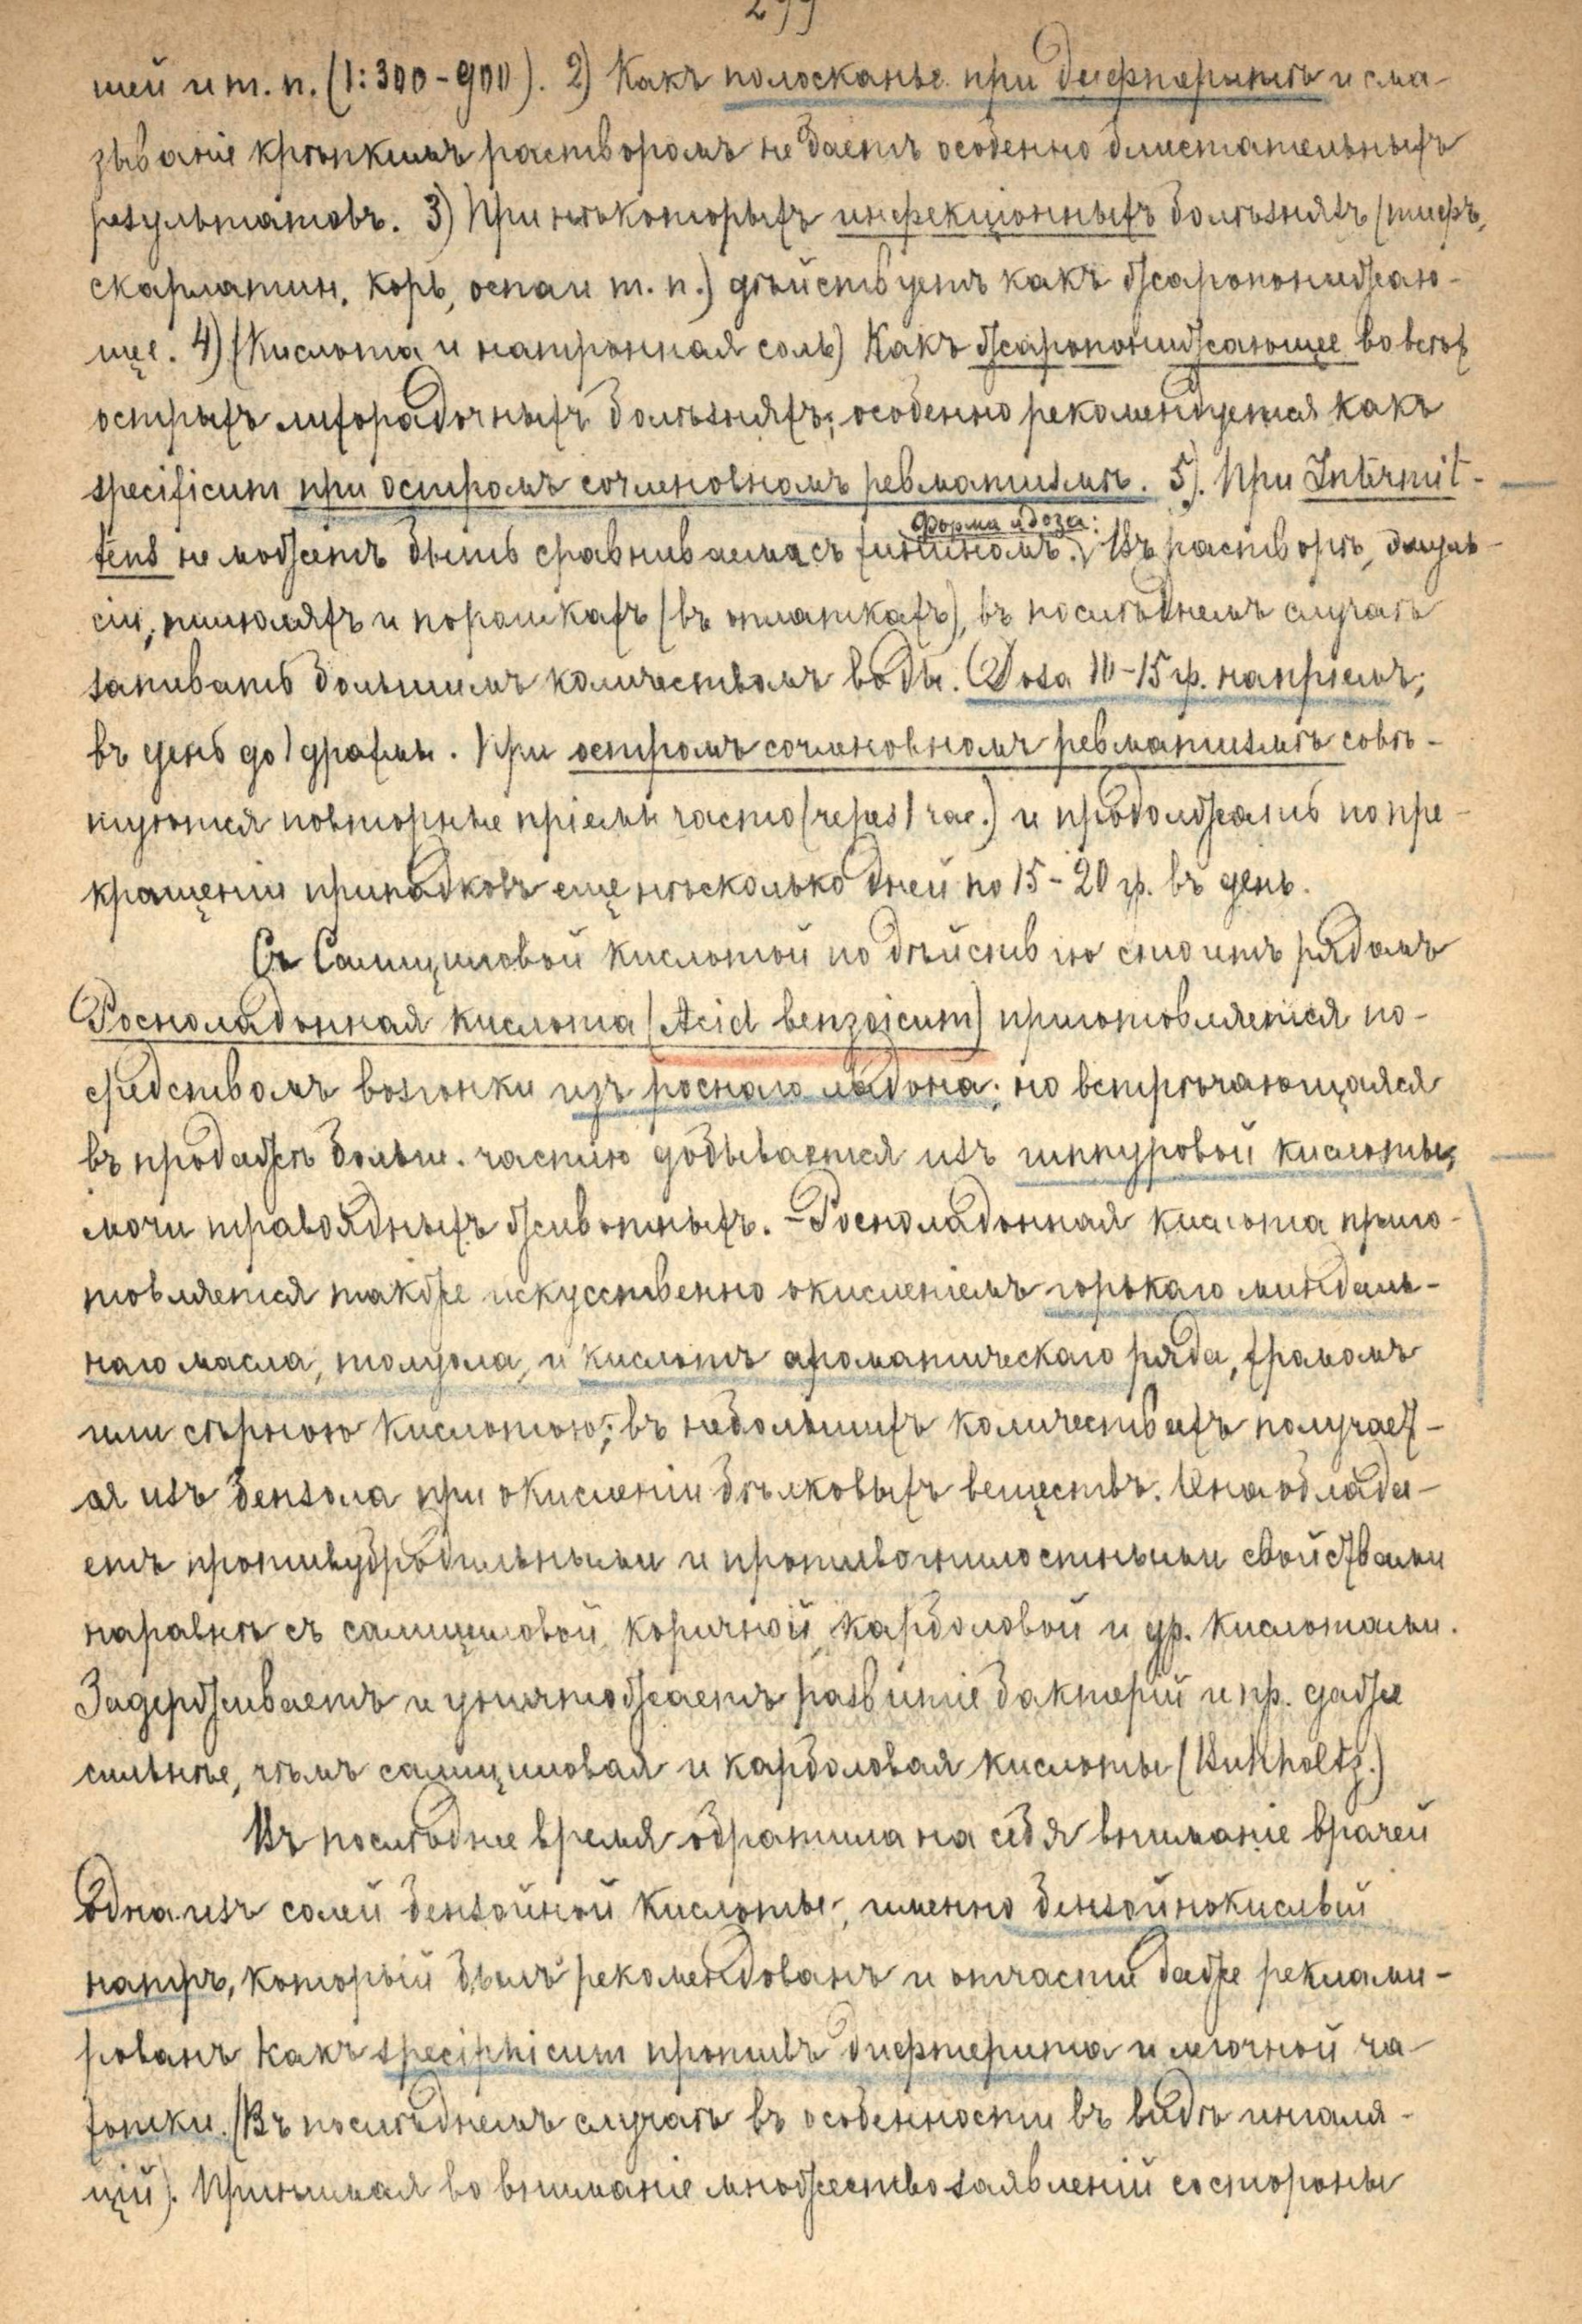 299
шей и т. п. (1:300-900). 2) Какъ полосканье при дифтеритѣ и сма-
зываніе крѣпкимъ растворомъ не даетъ особенно блистательныхъ
результатовъ. 3) При нѣкоторыхъ инфекціонныхъ болѣзняхъ (тифъ,
скарлатин, корь, оспа и т. п.) дѣйствуетъ какъ жаропонижаю-
щее. 4) (Кислота и натронная соль) Какъ жаропонижающее во всѣхъ
острыхъ лихорадочныхъ болѣзняхъ; особенно рекомендуется какъ
specificum при остромъ сочленовномъ ревматизмѣ. 5). При Intermit-
tens не можетъ быть сравниваема съ хининомъ. Форма и доза: Въ растворѣ, эмуль-
сіи, пилюляхъ и порошкахъ (въ оплаткахъ), въ послѣднемъ случаѣ
запивать большимъ количествомъ воды. Doza 10-15 гр. на пріемъ;
въ день до 1 драхмы. При остромъ сочленовномъ ревматизмѣ совѣ-
туются повторные пріемы часто (черезъ 1 час.) и продолжать по пре-
кращеніи припадковъ еще нѣсколько дней по 15-20 гр. въ день.
Съ Салициловой кислотой по дѣйствію стоитъ рядомъ
Росноладонная кислота (Acid benzoicum) приготовляется по-
средствомъ возгонки изъ роснаго ладона; но встрѣчающаяся
въ продажѣ больш. частію добывается изъ гиппуровой кислоты,
мочи травоядныхъ животныхъ. - Росноладонная кислота приго-
товляется также искусственно окисленіемъ горькаго миндаль-
наго масла, толуола, и кислотъ ароматическаго ряда, хромомъ
или сѣрною кислотою; въ небольшихъ количествахъ получает-
ся изъ бензола при окисленіи бѣлковыхъ веществъ. Она облада-
етъ противубродильными и противогнилостными свойствами
наравнѣ съ салициловой, коричной, карболовой и др. кислотами.
Задерживаетъ и уничтожаетъ развитіе бактерій и пр. даже
сильнѣе, чѣмъ салициловая и карболовая кислоты (Bukholtz.)
Въ послѣднее время обратила на себя вниманіе врачей
одна изъ солей бензойной кислоты, именно бензойнокислый
натръ, который былъ рекомендованъ и отчасти даже реклами-
рованъ какъ speciphicum противъ дифтерита и легочной ча-
хотки. (Въ послѣднемъ случаѣ въ особенности въ видѣ ингаля-
цій). Принимая во вниманіе множество заявленій со стороны